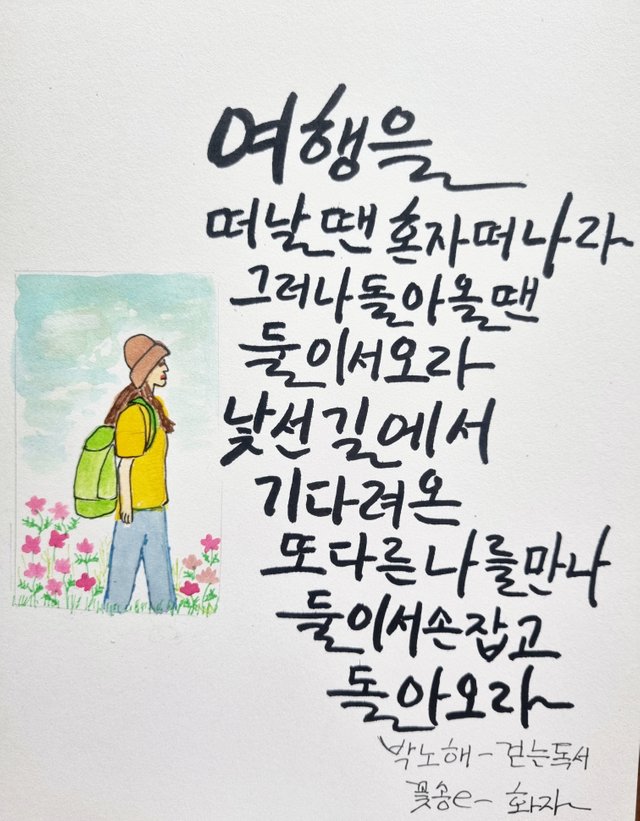 여행을
떠날 땐 혼자 떠나라
그러나 돌아올 땐
둘이서 오라
낯선 길에서
기다려온
또 다른 나를 만나
둘이서 손잡고
돌아오라
박노해 - 걷는 독서
꽃송e - 화자